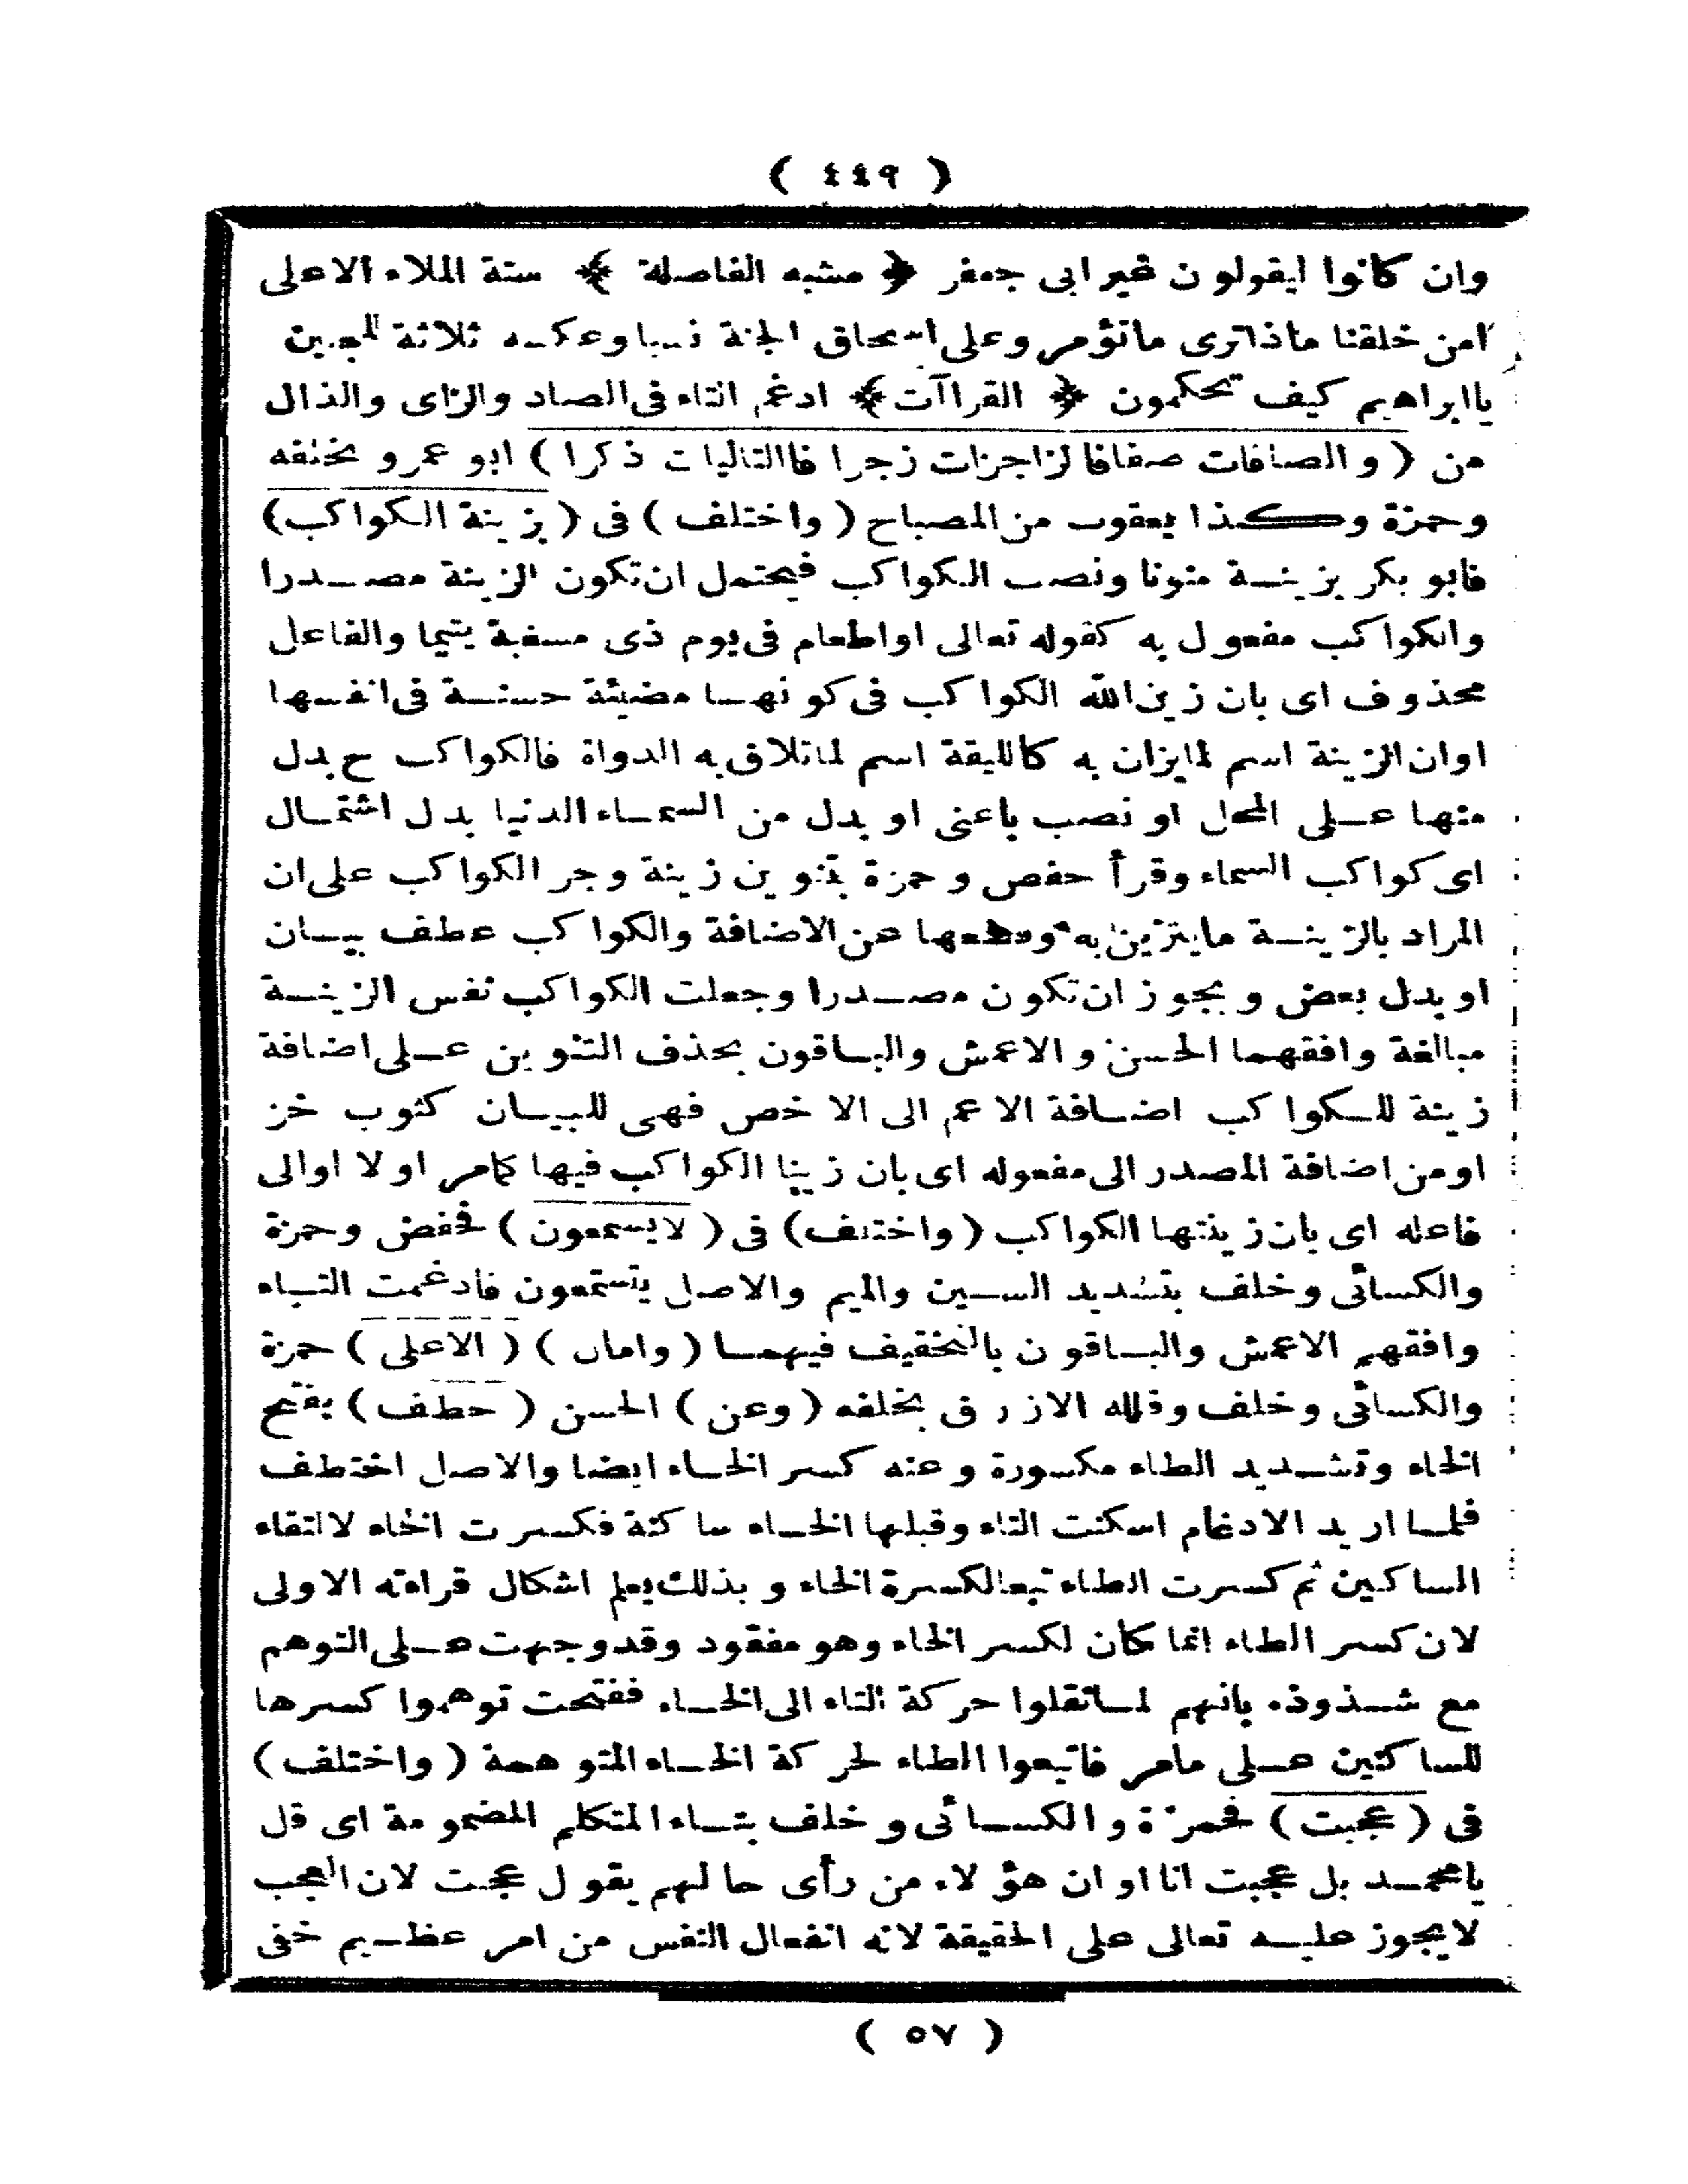 ( ٤٤٩ )
وان كانوا ليقولون غير ابى جعفر ﴿ مشبه الفاصلة ﴾ ستة الملاء الاعلى
امن خلقنا ماذا ترى ماتؤمر وعلى اسحاق الجنة نسبا وعكسه ثلاثة للجبين
يا ابراهيم كيف تحكمون ﴿ القراآت ﴾ ادغم التاء فى الصاد والزاى والذال
من ( والصافات صفافالزاجرات زجرا فالتاليات ذكرا ) ابو عمرو بخلفه
وحمزة وكذا يعقوب من المصباح ( واختلف ) فى ( بزينة الكواكب )
فابو بكر بزينة منونا ونصب الكواكب فيحتمل ان تكون الزينة مصدرا
والكواكب مفعول به كقوله تعالى او اطعام فى يوم ذى مسغبة يتيما والفاعل
محذوف اى بان زين الله الكواكب فى كونها مضيئة حسنة فى انفسها
اوان الزينة اسم لمايزان به كالليقة اسم لماتلاق به الدواة فالكواكب ح بدل
منها على المحل او نصب باعنى او بدل من السماء الدنيا بدل اشتمال
اى كواكب السماء وقرأ حفص وحمزة بتنوين زينة وجر الكواكب على ان
المراد بالزينة مايتزين به وقطعها عن الاضافة والكواكب عطف بيان
او بدل بعض ويجوز ان تكون مصدرا وجعلت الكواكب نفس الزينة
مبالغة وافقهما الحسن والاعمش والباقون بحذف التنوين على اضافة
زينة للكواكب اضافة الاعم الى الاخص فهى للبيان كثوب خز
اومن اضافة المصدر الى مفعوله اى بان زينا الكواكب فيها كمامر اولا اوالى
فاعله اى بان زينتها الكواكب ( واختلف ) فى ( لا يسمعون ) فحفص وحمزة
والكسائى وخلف بتشديد السين والميم والاصل يتسمعون فادغمت التاء
وافقهم الاعمش والباقون بالتخفيف فيهما ( وامال ) ( الاعلى ) حمزة
والكسائى وخلف وقلله الازرق بخلفه ( وعن ) الحسن ( خطف ) بفتح
الخاء وتشديد الطاء مكسورة وعنه كسر الخاء ايضا والاصل اختطف
فلما اريد الادغام اسكنت التاء وقبلها الخاء ساكنة فكسرت الخاء لالتقاء
الساكنين ثم كسرت الطاء تبعالكسرة الخاء وبذلك يعلم اشكال قراءته الاولى
لان كسر الطاء انما كان لكسر الخاء وهو مفقود وقدوجهت على التوهم
مع شذوذه بانهم لمانقلوا حركة التاء الى الخاء ففتحت توهموا كسرها
للساكنين على مامر فاتبعوا الطاء لحركة الخاء المتوهمة ( واختلف )
فى ( عجبت ) فحمزة والكسائى وخلف بتاء المتكلم المضمومة اى قل
يامحمد بل عجبت انا اوان هؤلاء من رأى حالهم يقول عجبت لان العجب
لايجوز عليه تعالى على الحقيقة لانه انفعال النفس من امر عظيم خفى
( ٥٧ )